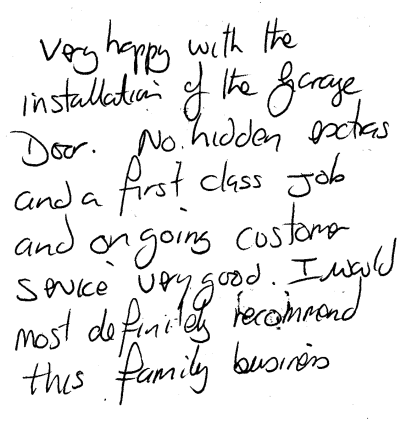 Very happy with the
installation of the Garage
Door. No hidden extras
and a first class job
and ongoing customer
service very good. I would
most definitely recommend
this family business